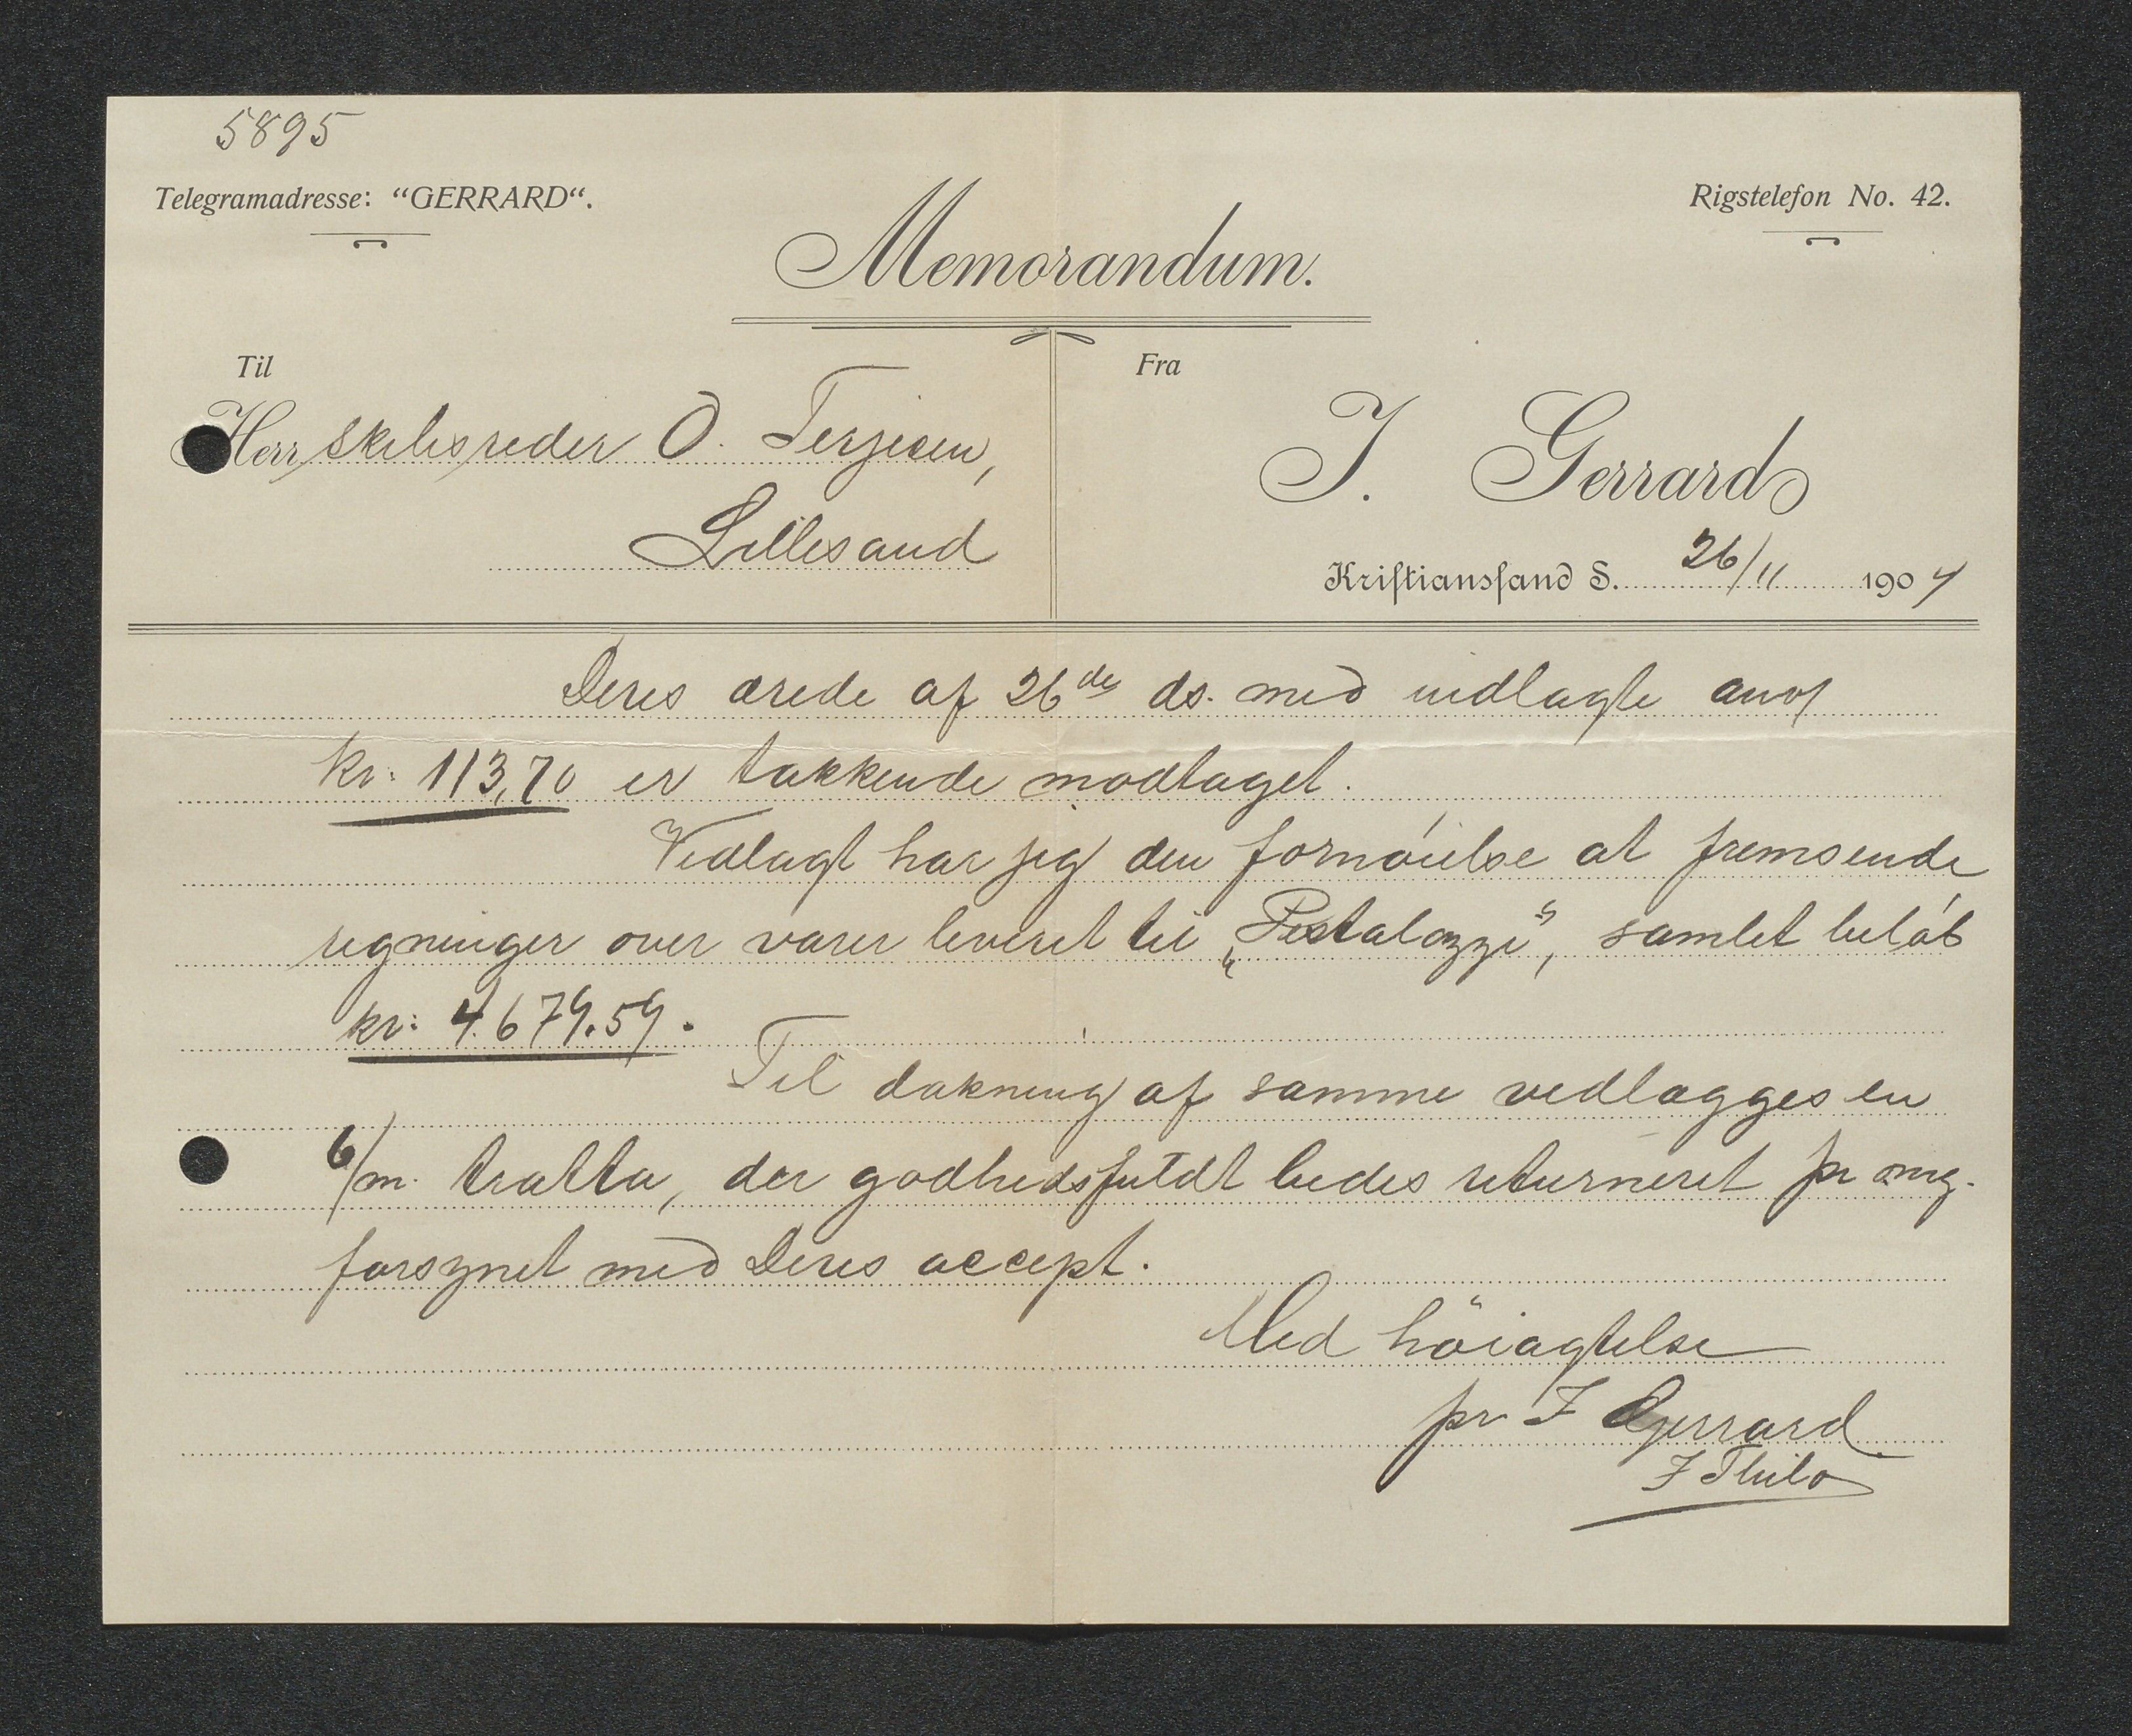 5895
Telegramadresse: “GERRARD“.
Rigstelefon No. 42.
Memorandum.
Til
Fra
Herr Skibsreder O. Terjesen,
J. Gerrard
Lillesand
Kristianssand S. 26/11 1904
Deres ærede af 26de ds. med indlagte anv/
kr: 113,70 er takkende modtaget.
Vedlagt har jeg den fornøielse at fremsende
regninger over varer leveret til „Pestalozzi“, samlet beløb
kr: 4.679.59.
Til dækning af samme vedlægges en
6/m. tratta, der godhedsfuldt bedes returneret pr omg.
forsynet med Deres accept.
Med höiagtelse
pr J Gerrard
J Thilo